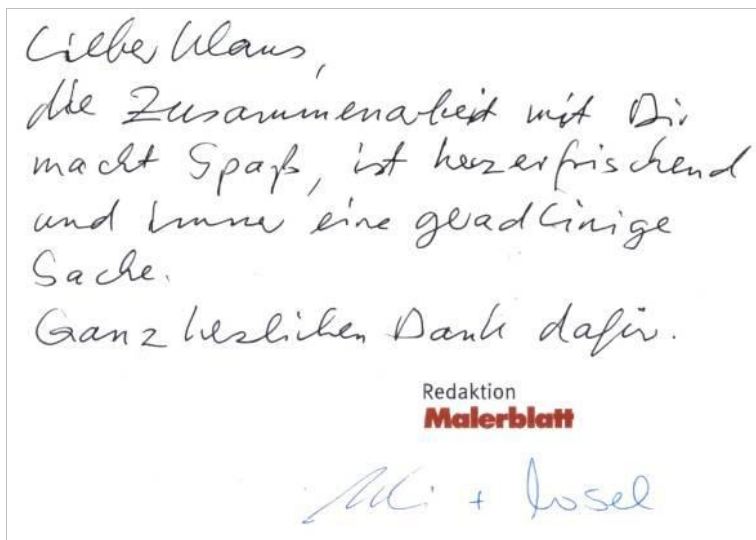 Lieber Klaus,
die Zusammenarbeit mit Dir
macht Spaß, ist herzerfrischend
und immer eine geradlinige
Sache.
Ganz herzlichen Dank dafür.
Redaktion
Malerblatt
+ Rosel